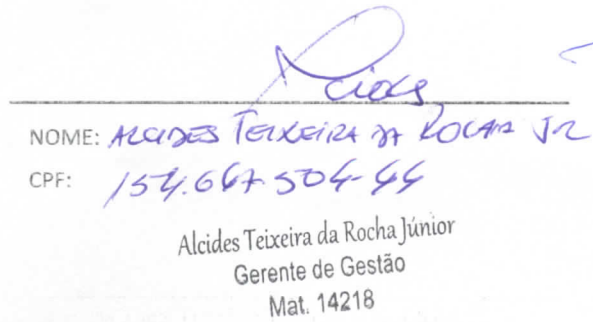 Alcides
NOME: ALCIDES TEIXEIRA DA ROCHA JR
CPF: 154.667.504-44
Alcides Teixeira da Rocha Júnior
Gerente de Gestão
Mat. 14218